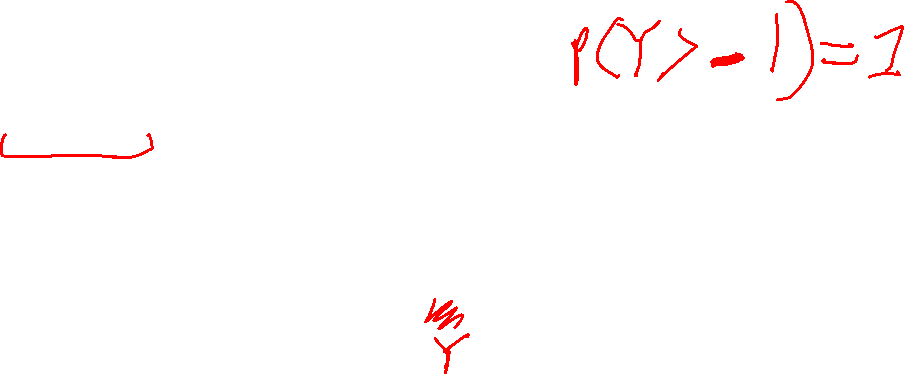 P(Y>-1)=1
Y